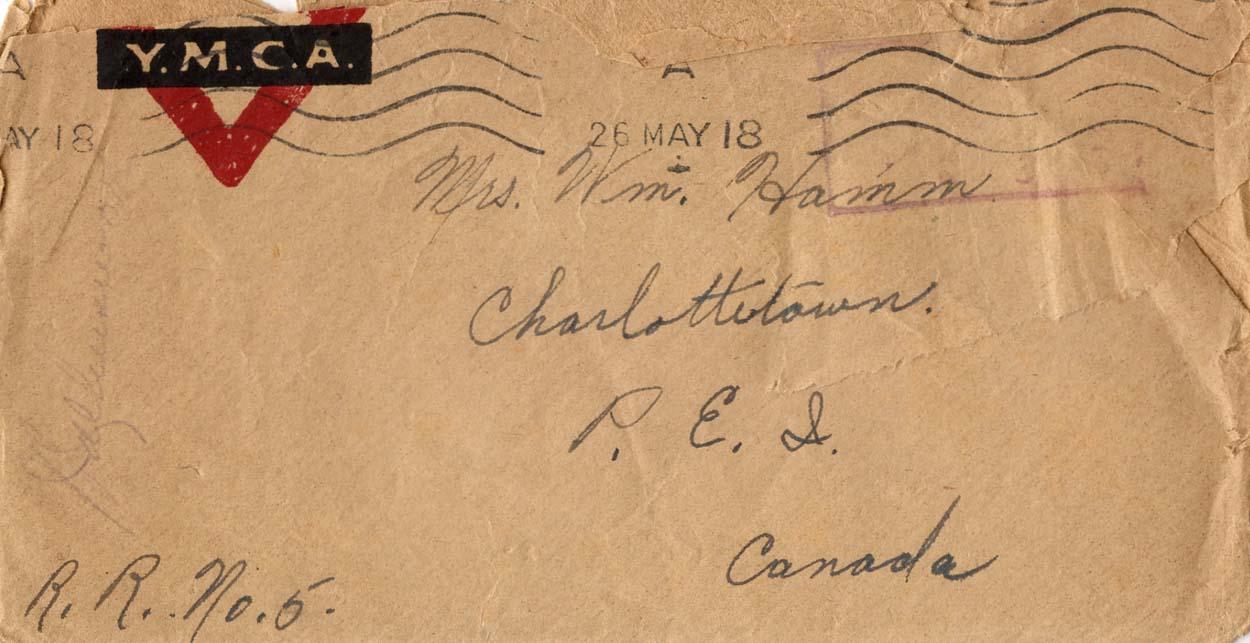 Y.M.C.A.
A
A
AY 18
26 MAY 18
Mrs. Wm. Hamm
Charlottetown.
P. E. I.
Canada
R. R. No. 5.